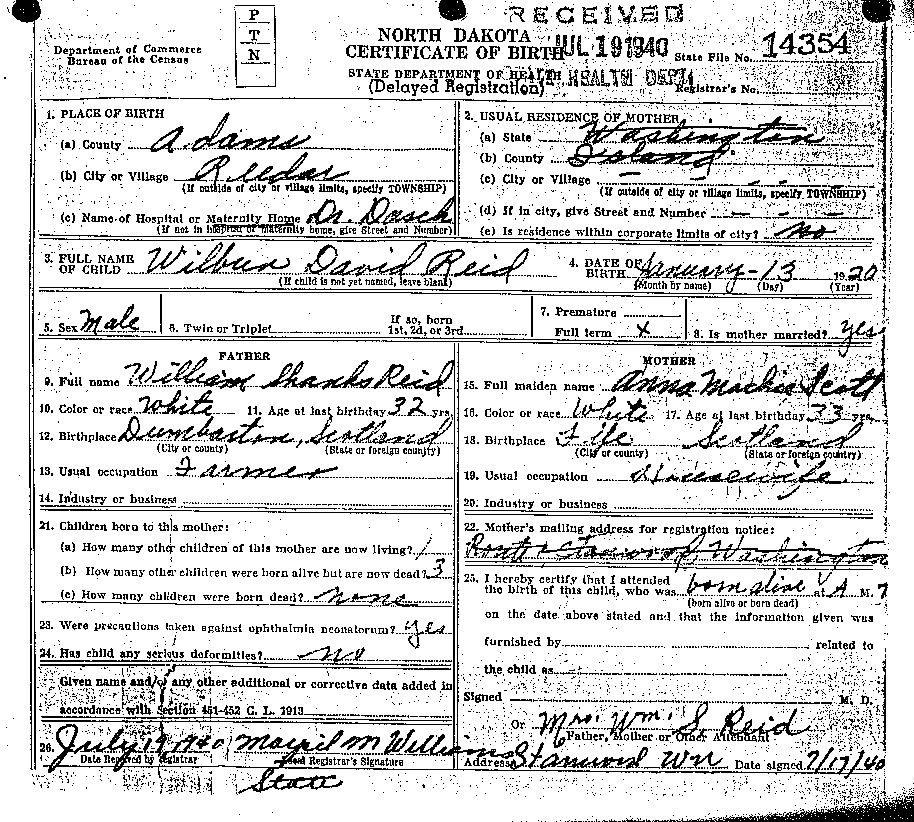 RECEIVED
P
T
N
NORTH DAKOTA
CERTIFICATE OF BIRTH
JUL 19 1940
Department of Commerce
Bureau of the Census
State File No. 14354
STATE DEPARTMENT OF HEALTH
HEALTH DEPT.
(Delayed Registration)
Registrar's No.
1. PLACE OF BIRTH
(a) County Adams
(b) City or Village Reeder
(If outside of city or village limits, specify TOWNSHIP)
(c) Name of Hospital or Maternity Home Dr. Dasch
(If not in hospital or maternity home, give Street and Number)
2. USUAL RESIDENCE OF MOTHER
(a) State Washington
(b) County Island
(c) City or Village - - - -
(If outside of city or village limits, specify TOWNSHIP)
(d) If in city, give Street and Number - - - -
(e) Is residence within corporate limits of city? no
3. FULL NAME OF CHILD Wilbur David Reid
(If child is not yet named, leave blank)
4. DATE OF BIRTH January - 13 1920
(Month by name) (Day) (Year)
5. Sex Male
6. Twin or Triplet
If so, born
1st, 2d, or 3rd
7. Premature
Full term x
8. Is mother married? yes
FATHER
9. Full name William Shanks Reid
10. Color or race White 11. Age at last birthday 32 yrs.
12. Birthplace Dumbarton, Scotland
(City or county) (State or foreign county)
13. Usual occupation Farmer
14. Industry or business
MOTHER
15. Full maiden name Anna Scott
16. Color or race White 17. Age at last birthday 33 yrs.
18. Birthplace Fife Scotland
(City or county) (State or foreign country)
19. Usual occupation Housewife
20. Industry or business
21. Children born to this mother:
(a) How many other children of this mother are now living? 1
(b) How many other children were born alive but are now dead? 3
(c) How many children were born dead? none
22. Mother's mailing address for registration notice:
Stanwood, Washington
23. Were precautions taken against ophthalmia neonatorum? yes
24. Has child any serious deformities? no
25. I hereby certify that I attended
the birth of this child, who was born alive at A M.
(born alive or born dead)
on the date above stated and that the information given was
furnished by related to
the child as
Given name and/or any other additional or corrective data added in
accordance with Section 451-452 C. L. 1913
Signed M. D.
Or Mrs. Wm. S Reid
Father, Mother or Other Attendant
26. July 19 1940 M Williams
Date Received by registrar Registrar's Signature
State
Address Stanwood Wn Date signed 7/17/40